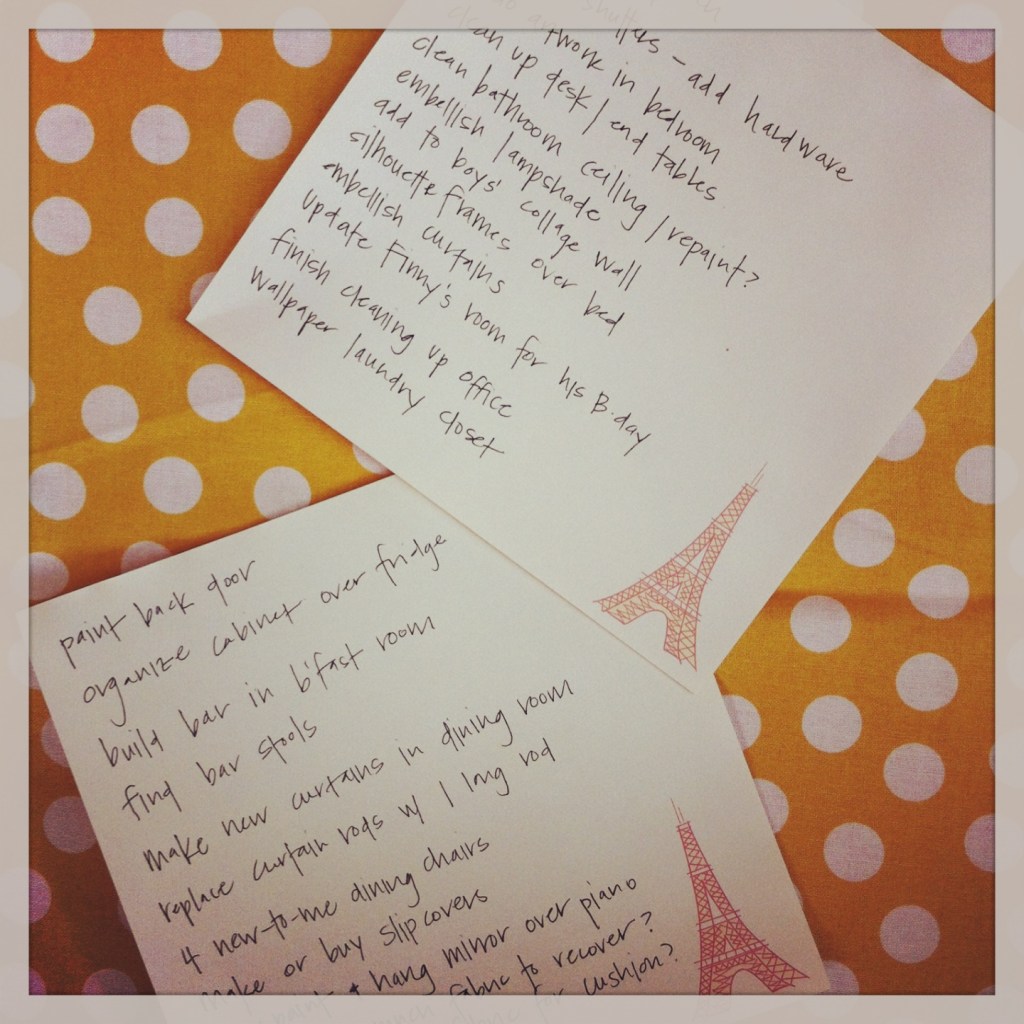 shutters - add hardware
artwork in bedroom
clean up desk / end tables
clean bathroom ceiling / repaint?
embellish lampshade
add to boys' collage wall
silhouette frames over bed
embellish curtains
update Finny's room for his B.day
finish cleaning up office
wallpaper laundry closet
paint back door
organize cabinet over fridge
build bar in b'fast room
find bar stools
make new curtains in dining room
replace curtain rods w/ 1 long rod
4 new-to-me dining chairs
make or buy slipcovers
paint + hang mirror over piano
fabric to recover?
cushion?